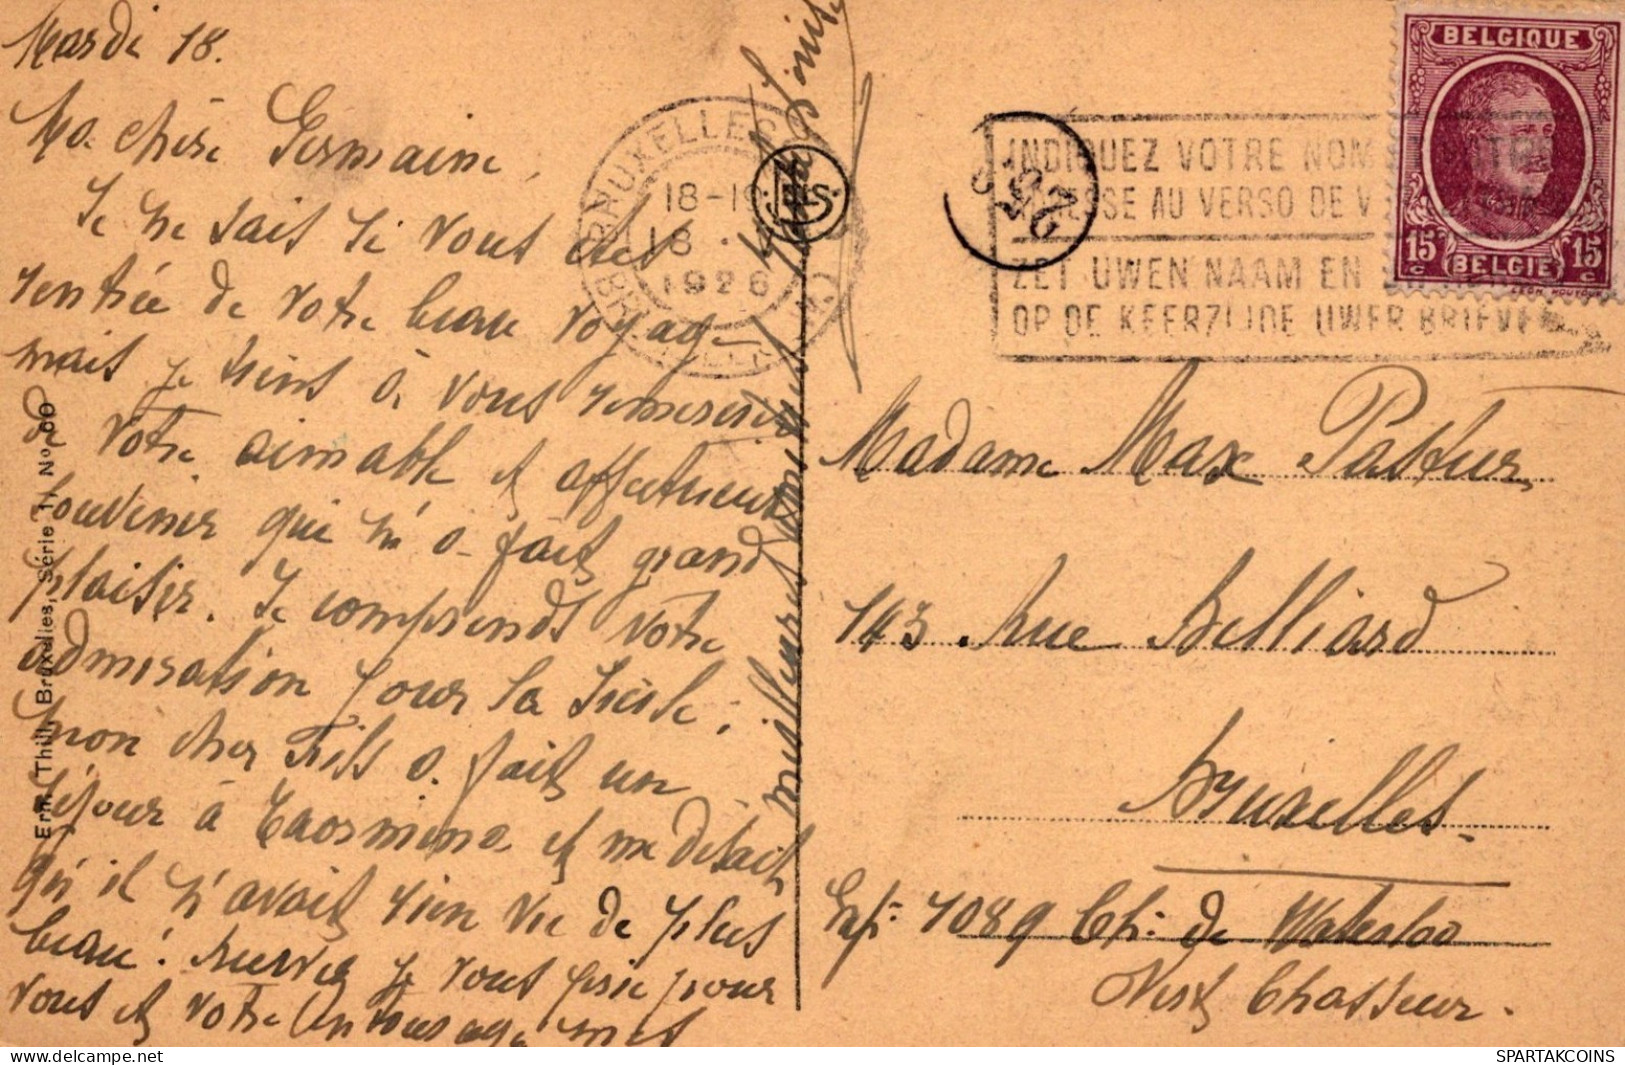 Mardi 18.
Ma chère Germaine,
Je ne sait si vous êtes
rentrée de votre beau voyag-
mais je tiens à vous remercier
de votre aimable et affectueux
souvenir qui m'a fait grand
plaisir. Je comprends votre
admiration pour la Sicile ;
mon cher Fils a fait un
séjour à Taormina et me disait
qu'il n'avait rien vu de plus
beau ! je vous prie pour
vous et votre entourage mes
meilleures amitiés
BRUXELLES
18-19
18
1926
BRUSSEL
INDIQUEZ VOTRE NOM
ESSE AU VERSO DE V
ZET UWEN NAAM EN
OP DE KEERZIJDE UWER BRIEVEN
BELGIQUE
15 c
15 c
BELGIE
Madame Max Pastur
143 . rue Belliard
Bruxelles.
Exp: 1089 Ch: de Waterloo
Vert Chasseur.
Ern. Thill, Bruxelles, Série 11 No 60
SPARTAKCOINS
delcampe.net